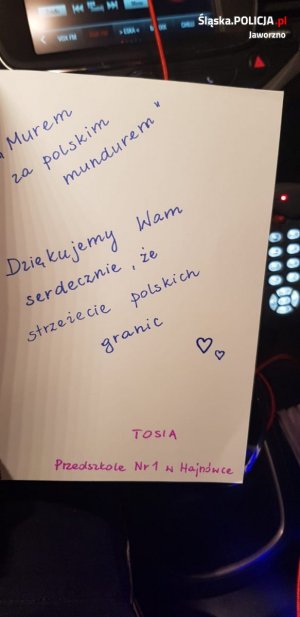 Śląska.POLICJA.pl
Jaworzno
VOX FM
"Murem
za polskim
mundurem"
Dziękujemy Wam
serdecznie, że
strzeżecie polskich
granic
TOSIA
Przedszkole Nr 1 w Hajnówce